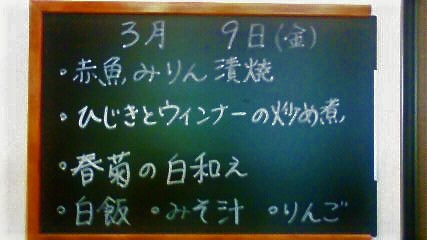 3月 9日(金)
・赤魚みりん漬焼
・ひじきとウィンナーの炒め煮
・春菊の白和え
・白飯 ・みそ汁 ・りんご